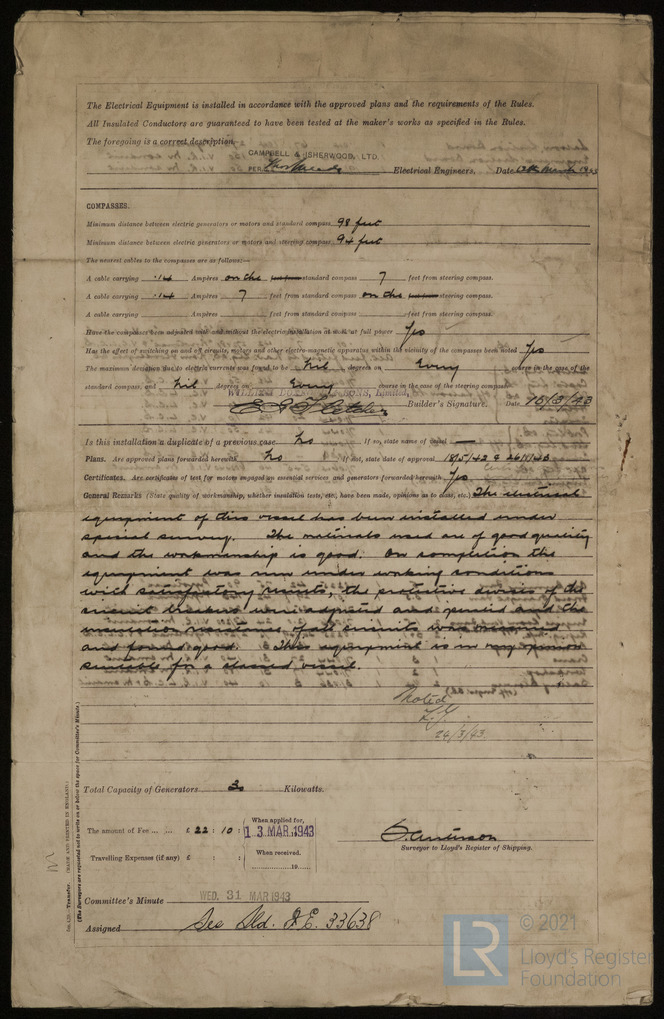 The Electrical Equipment is installed in accordance with the approved plans and the requirements of the Rules.
All Insulated Conductors are guaranteed to have been tested at the maker's works as specified in the Rules.
The foregoing is a correct description.
CAMPBELL & ISHERWOOD, LTD.
PER Electrical Engineers. Date
COMPASSES.
Minimum distance between electric generators or motors and standard compass 98 feet
Minimum distance between electric generators or motors and steering compass 94 feet
The nearest cables to the compasses are as follows:—
A cable carrying .14 Ampères on the standard compass 7 feet from steering compass.
A cable carrying .14 Ampères 7 feet from standard compass on the steering compass.
A cable carrying Ampères feet from standard compass feet from steering compass.
Have the compasses been adjusted with and without the electric installation at work at full power Yes
Has the effect of switching on and off circuits, motors and other electro-magnetic apparatus within the vicinity of the compasses been noted Yes
The maximum deviation due to electric currents was found to be Nil degrees on Every course in the case of the
standard compass, and Nil degrees on Every course in the case of the steering compass.
SONS, Limited,
Builder's Signature. Date 15/3/43
Is this installation a duplicate of a previous case No If so, state name of vessel —
Plans. Are approved plans forwarded herewith No If not, state date of approval 18/5/42 &
Certificates. Are certificates of test for motors engaged on essential services and generators forwarded herewith Yes
General Remarks (State quality of workmanship, whether insulation tests, etc., have been made, opinions as to class, etc.) The electrical
equipment of this vessel has been installed under
special survey. The materials used are of good quality
and the workmanship is good. On completion the
equipment was run under working conditions
with satisfactory results, the protective devices of the
circuit breakers were adjusted and and the
insulation resistance of all circuits was measured
and found good. This equipment is in my opinion
suitable for a classed vessel.
Noted
26/3/43
Total Capacity of Generators Kilowatts.
The amount of Fee ... ... £ 22 : 10 :
When applied for,
13 MAR 1943
Travelling Expenses (if any) £ : :
When received.
19
S. Anderson
Surveyor to Lloyd's Register of Shipping.
Committee's Minute WED. 31 MAR 1943
Assigned See Sld. F.E. 33638
Transfer. (MADE AND PRINTED IN ENGLAND.)
(The Surveyors are requested not to write on or below the space for Committee's Minute.)
© 2021
LR
Lloyd's Register
Foundation